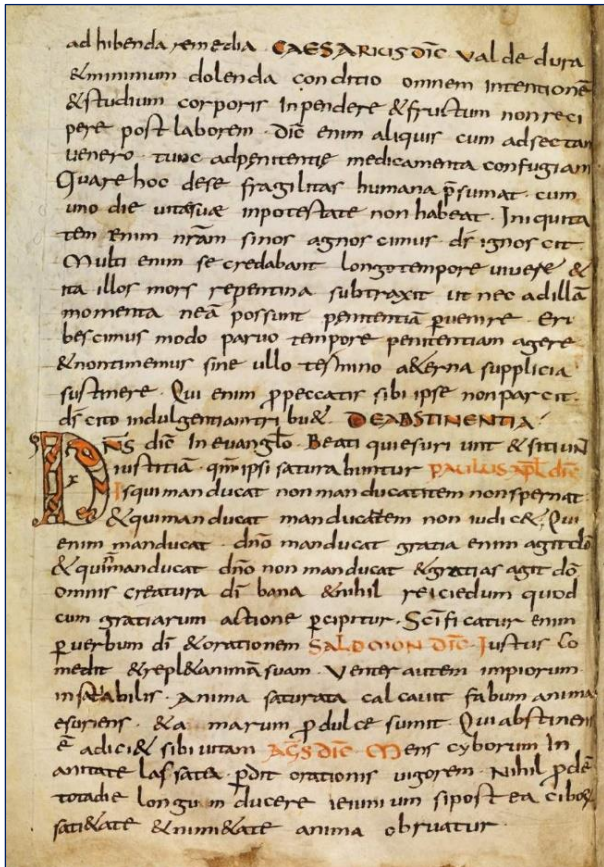 ad hibenda remedia. CAESARIUS DIC̄ Val de dura
&minimum dolenda conditio omnem intentionē
&studium corporis Inpendere &fructum non reci
pere post laborem. Dic̄ enim aliquis cum ad sectam
uenero. tunc adpenitentię medicamenta confugiam
Quare hoc dese fragilitas humana p̄sumat. cum
uno die uitæsuæ inpotestate non habeat. Iniquita
tem Enim nr̄am sinos agnoscimus. dī ignoscit.
Multi enim se credabant longo tempore uiuere &
ita illos mors repentina subtraxit ut nec adillā
momentaneā possunt penitentiā puenire. Eri
bescimus modo paruo tempore penitentiam agere
&nontimemus sine ullo termino a&erna supplicia
sustinere. Qui enim ppeccatis sibi ipse non parcit.
dī cito indulgentiam tribu&. DEABSTINENTIA
DN̄S dic̄ In euanglo. Beati quiesuri unt & sitiun
iustitiā. qm̄ ipsi satura buntur PAULUS APL̄ DIC̄
Is qui manducat non manducatitem non spernat.
&quimanducat manducantem non iudic&; Qui
enim manducat. dn̄o manducat gratia enim agit dō
&quinmanducat dn̄o non manducat &gratias agit dō
omnis creatura dī bana &nihil reiciedum quod
cum gratiarum actione pcipitur. Scīficatur enim
puerbum dī &orationem SALOMON DIC̄. Iustus co
medit &repl&animā suam. Venter autem impiorum
insatabilis. Anima saturata calcauit fabum anima
esuriens. &a marum pdulce sumit. Qui abstinens
ē adici& sibi uitam AGS DIC̄. Mens cyborum In
anitate lassata. pdit orationis uigorem. Nihil pdē
totadie longum ducere ieiunium sipost ea cibor
sati&ate &nimi&ate anima obruatur.